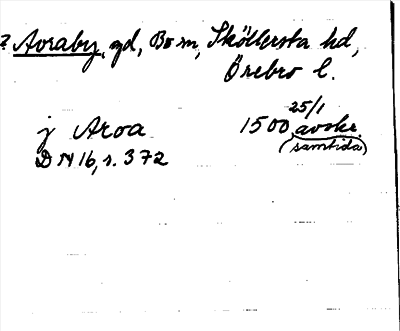 ? Avraby, gd, Bo sn, Sköllersta hd,
Örebro l.
25/1
j Aroa 1500 avskr.
(samtida)
DN 16, s. 372